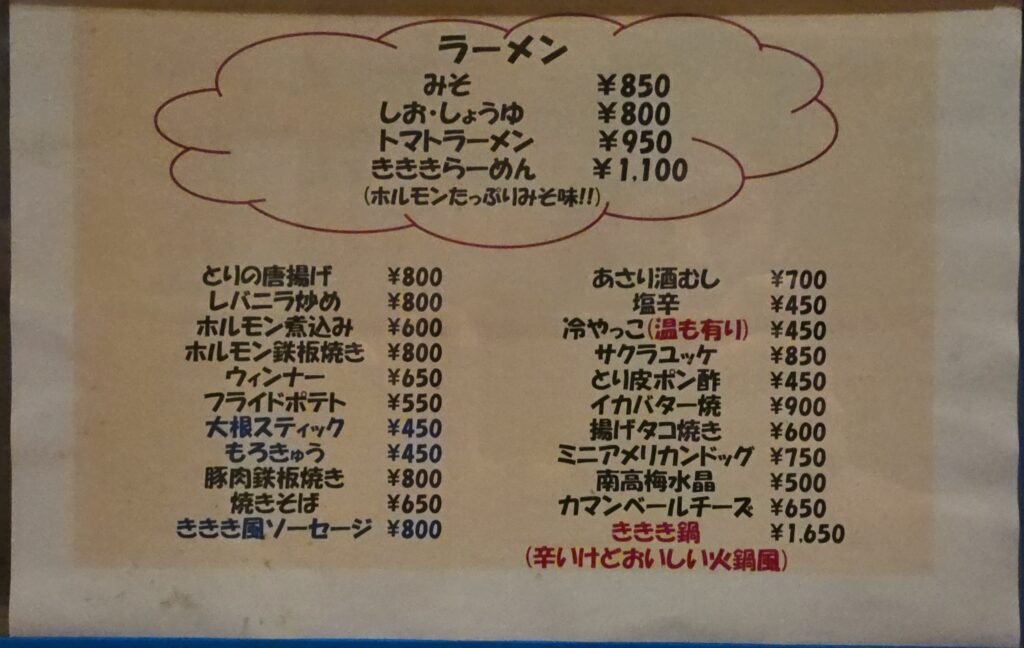 ラーメン
みそ ¥850
しお・しょうゆ ¥800
トマトラーメン ¥950
きききらーめん ¥1,100
(ホルモンたっぷりみそ味!!)
とりの唐揚げ ¥800
レバニラ炒め ¥800
ホルモン煮込み ¥600
ホルモン鉄板焼き ¥800
ウィンナー ¥650
フライドポテト ¥550
大根スティック ¥450
もろきゅう ¥450
豚肉鉄板焼き ¥800
焼きそば ¥650
ききき風ソーセージ ¥800
あさり酒むし ¥700
塩辛 ¥450
冷やっこ(温も有り) ¥450
サクラユッケ ¥850
とり皮ポン酢 ¥450
イカバター焼 ¥900
揚げタコ焼き ¥600
ミニアメリカンドッグ ¥750
南高梅水晶 ¥500
カマンベールチーズ ¥650
ききき鍋 ¥1,650
(辛いけどおいしい火鍋風)